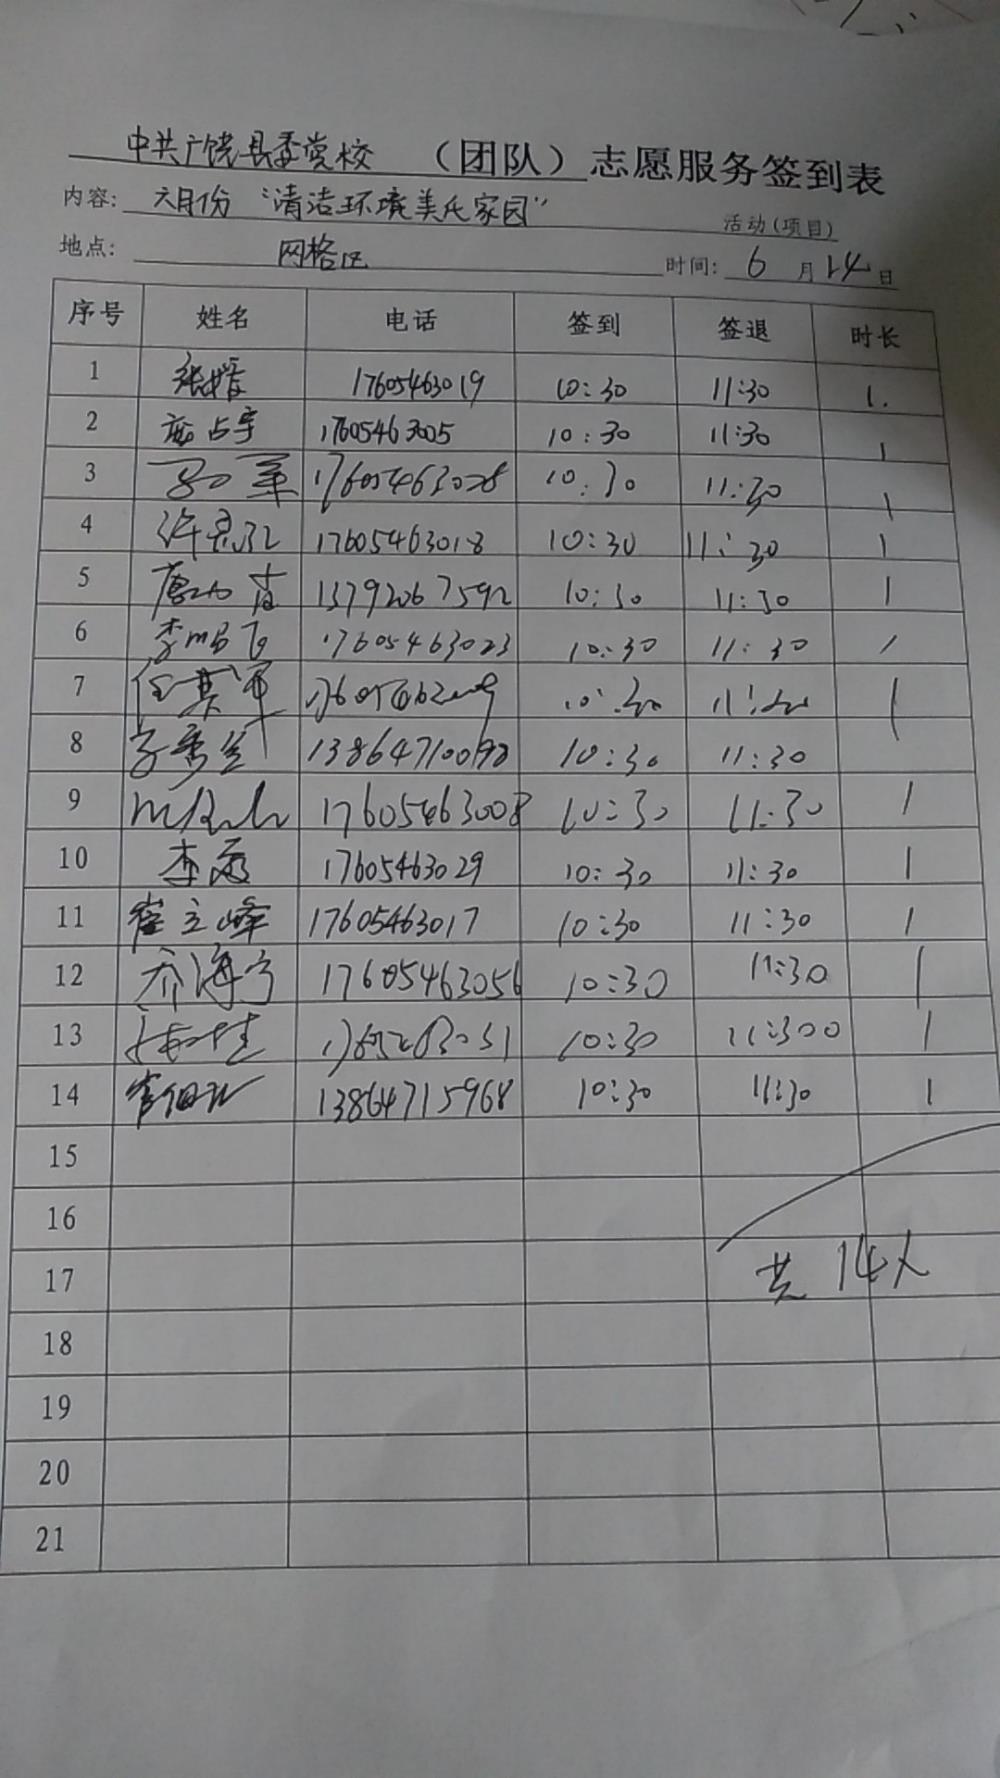 中共广饶县委党校 （团队）志愿服务签到表
内容: 六月份 "清洁环境美化家园" 活动(项目)
地点: 网格区 时间: 6 月 14 日
序号 姓名 电话 签到 签退 时长
1 17605463019 10:30 11:30 1.
2 17605463005 10:30 11:30 1
3 17605463028 10:30 11:30 1
4 17605463018 10:30 11:30 1
5 13792067592 10:30 11:30 1
6 李鹏飞 17605463023 10:30 11:30 1
7 任其军 10:30 11:30 1
8 10:30 11:30
9 17605463008 10:30 11:30 1
10 李 17605463029 10:30 11:30 1
11 崔立峰 17605463017 10:30 11:30 1
12 乔海宁 17605463056 10:30 11:30 1
13 10:30 11:300 1
14 13864715968 10:30 11:30 1
15
16
17 共14人
18
19
20
21